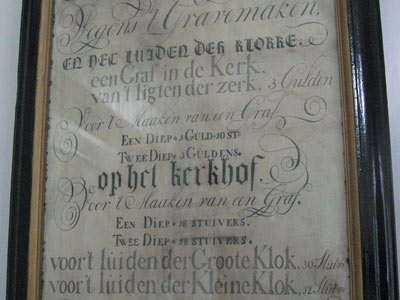 Wegens 't Gravemaken.
EN HET LUIDEN DER KLOKKE.
een Graf in de Kerk.
van't ligten der zerk, 3 Gulden
Voor't Maaken van een Graf.
EEN DIEP 3 GULD 10 ST
TWEE DIEP 5 GULDENS.
op het kerkhof.
Voor't Maaken van een Graf.
EEN DIEP 18 STUIVERS.
TWEE DIEP 28 STUIVERS.
voor't luiden der Groote Klok,
voor't luiden der Kleine Klok,